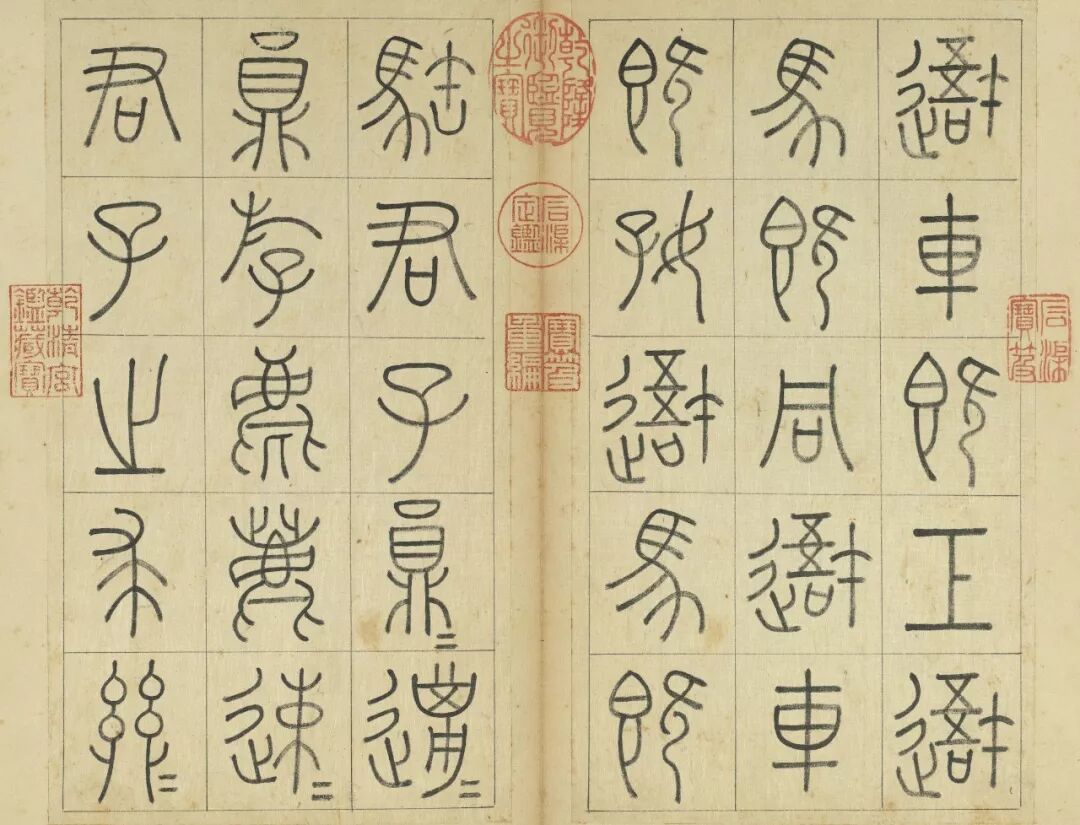 吾車既工吾
馬既同吾車
既好吾馬既
君子員=邋=
員斿麀鹿速=
君子之求
乾隆御覽之寶
石渠定鑑
寶笈重編
石渠寶笈
乾清宮鑑藏寶